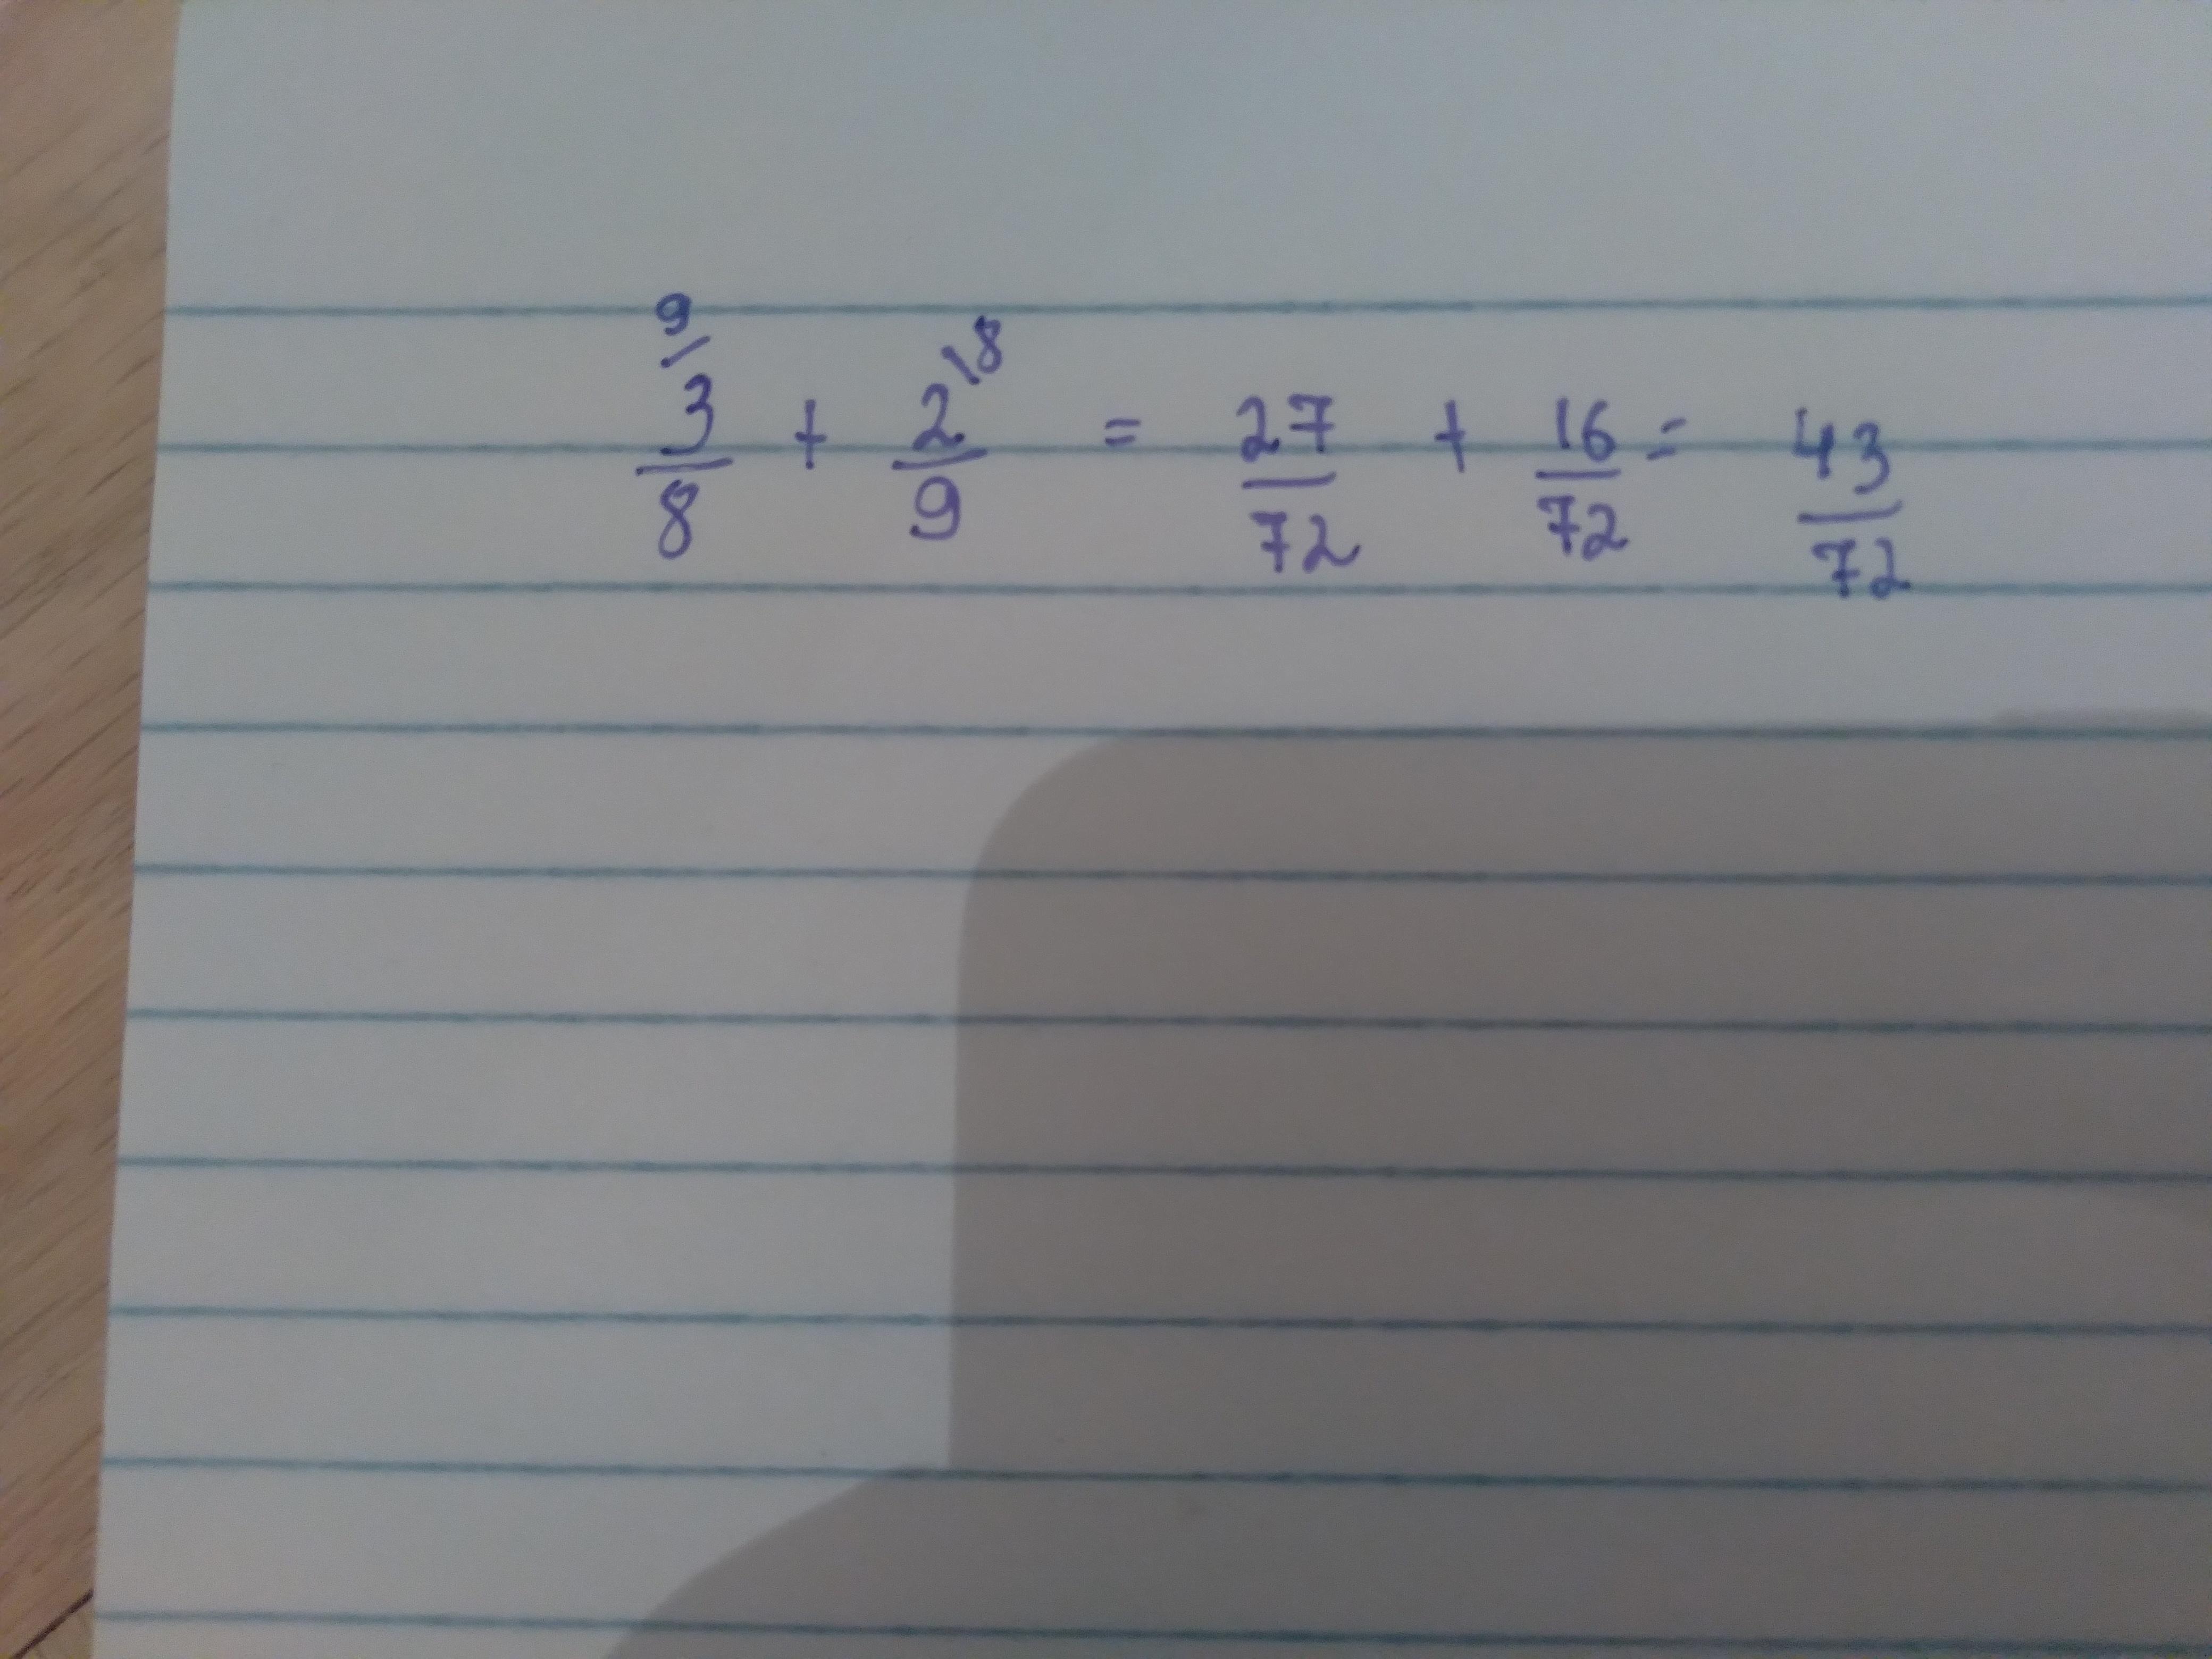 9/ \8
3/8 + 2/9 = 27/72 + 16/72 = 43/72